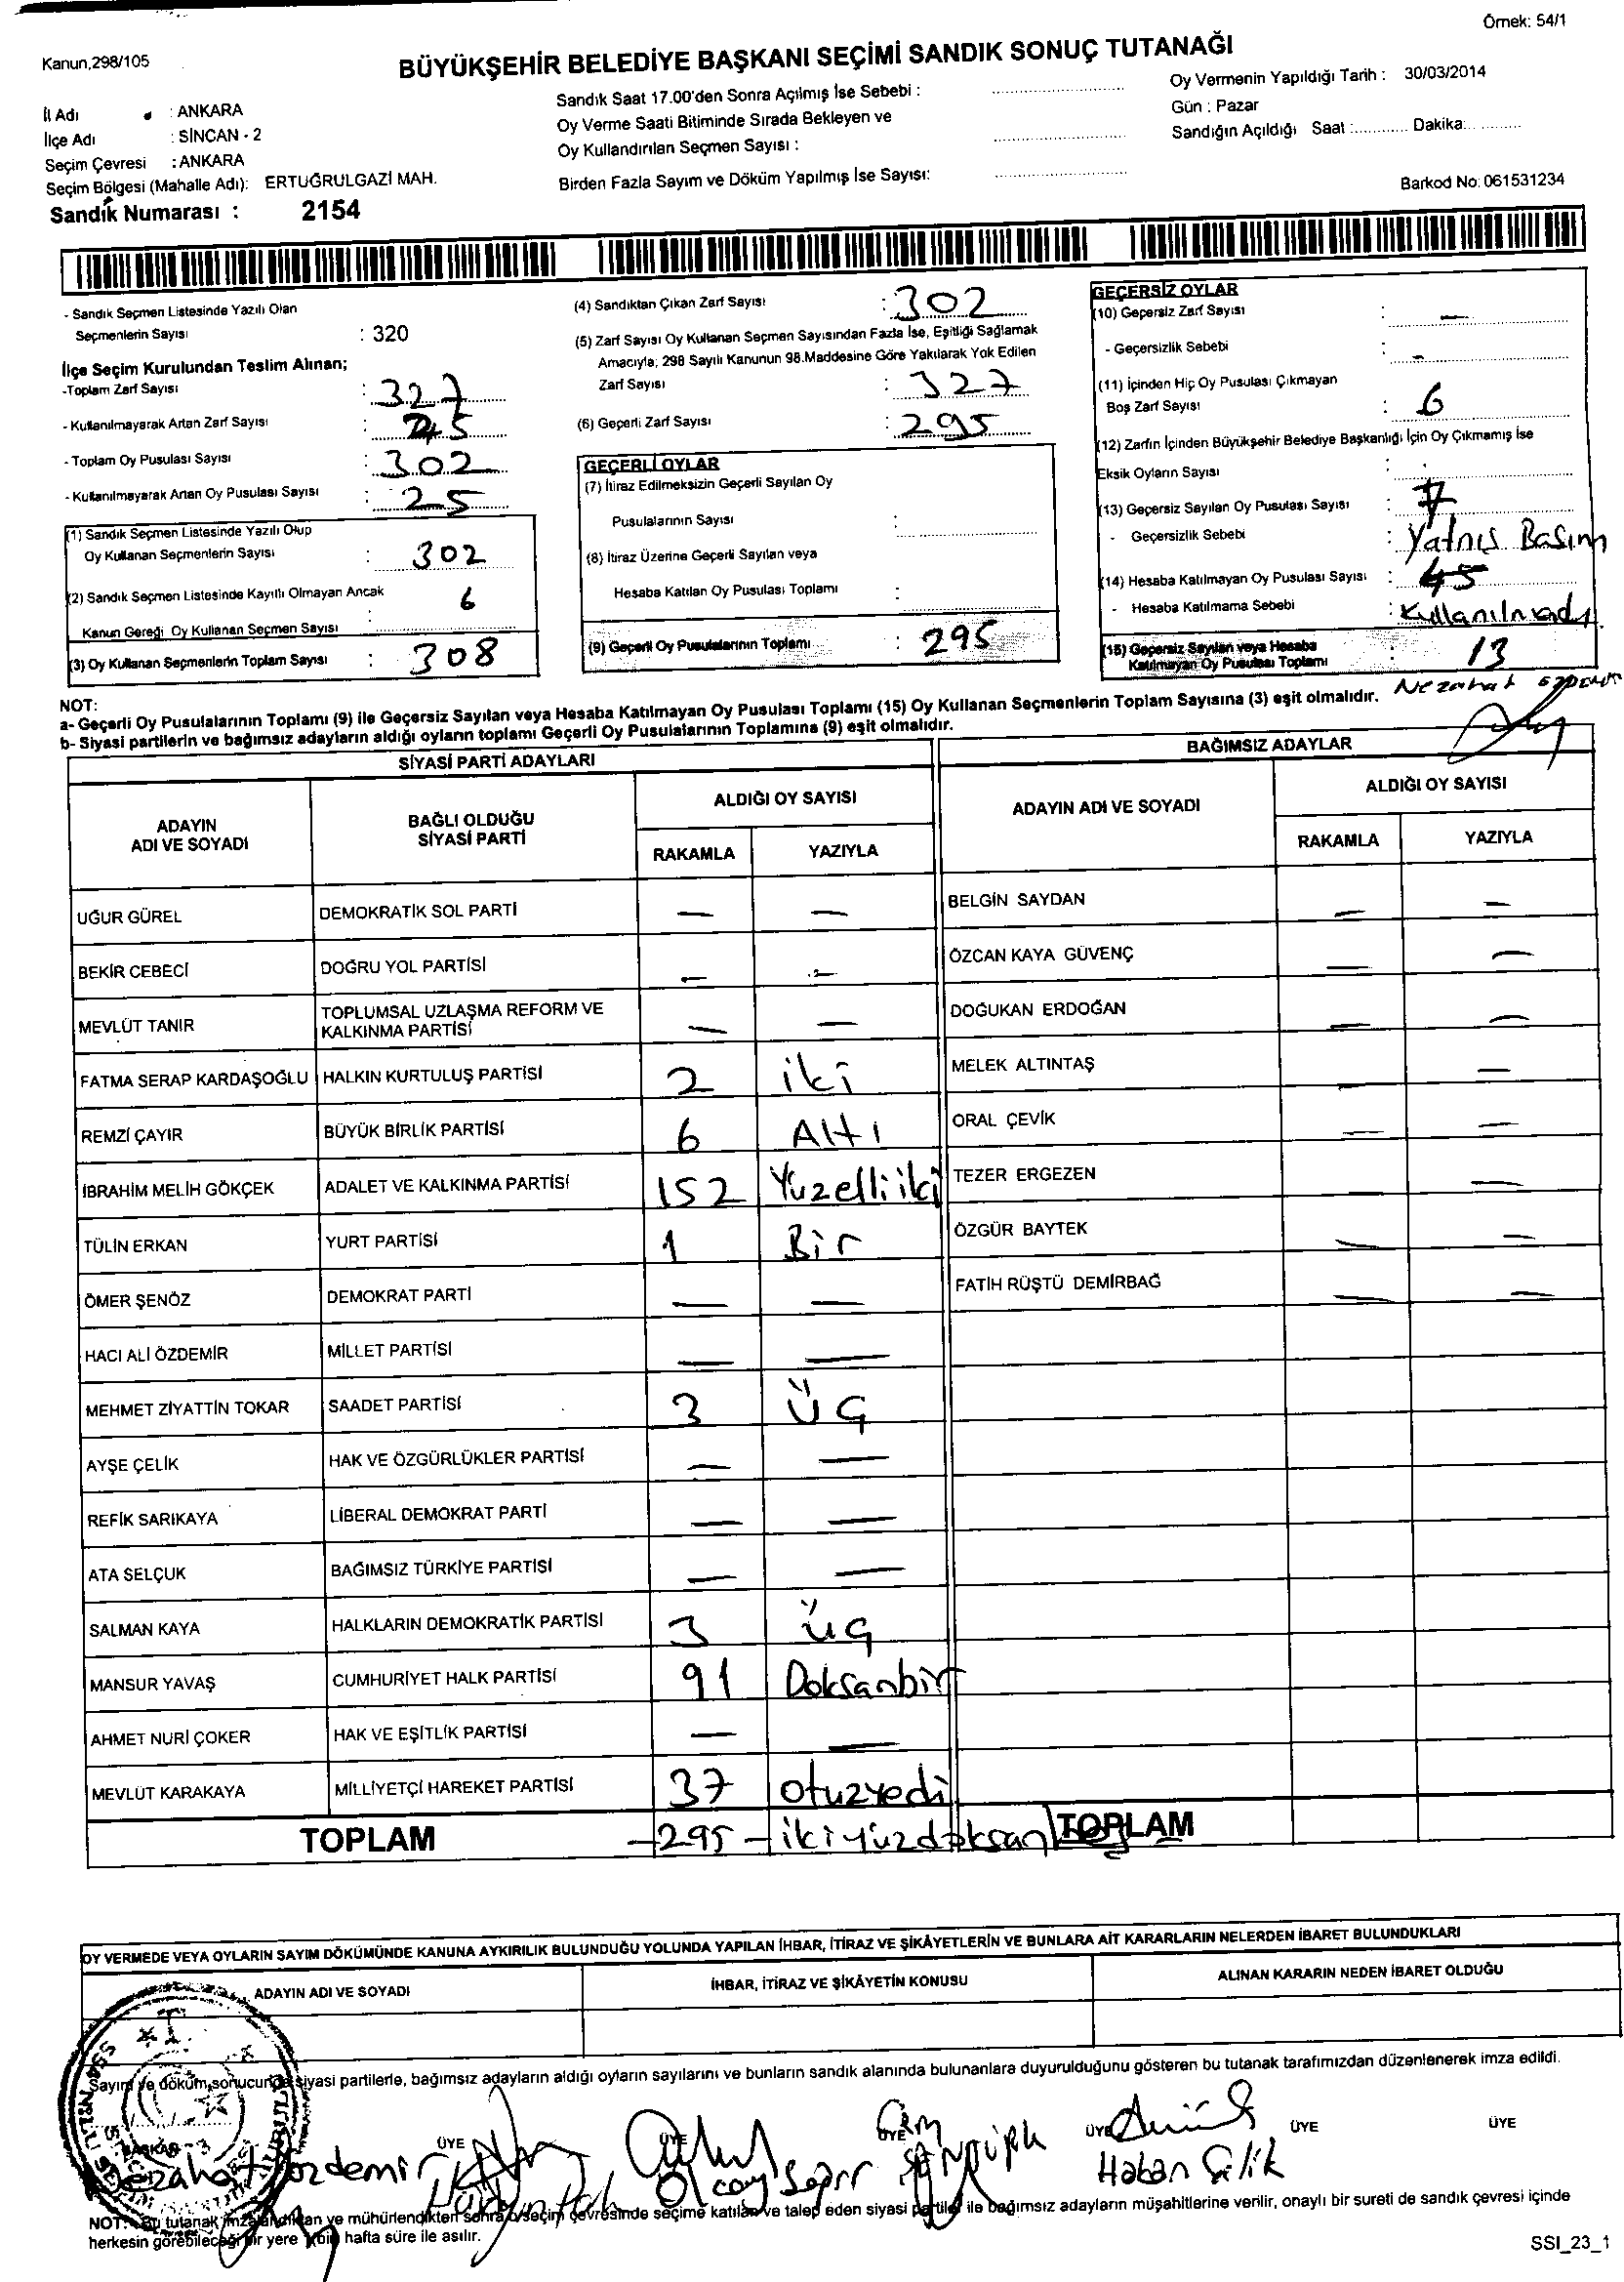 Örnek: 54/1
Kanun,298/105
BÜYÜKŞEHİR BELEDİYE BAŞKANI SEÇİMİ SANDIK SONUÇ TUTANAĞI
İl Adı : ANKARA
İlçe Adı : SİNCAN - 2
Seçim Çevresi : ANKARA
Seçim Bölgesi (Mahalle Adı): ERTUĞRULGAZİ MAH.
Sandık Numarası : 2154
Sandık Saat 17.00'den Sonra Açılmış İse Sebebi :
Oy Verme Saati Bitiminde Sırada Bekleyen ve
Oy Kullandırılan Seçmen Sayısı :
Birden Fazla Sayım ve Döküm Yapılmış İse Sayısı:
Oy Vermenin Yapıldığı Tarih : 30/03/2014
Gün : Pazar
Sandığın Açıldığı Saat :............ Dakika:...........
Barkod No: 061531234
- Sandık Seçmen Listesinde Yazılı Olan
Seçmenlerin Sayısı : 320
İlçe Seçim Kurulundan Teslim Alınan;
-Toplam Zarf Sayısı : 327
- Kullanılmayarak Artan Zarf Sayısı :
- Toplam Oy Pusulası Sayısı : 302
- Kullanılmayarak Artan Oy Pusulası Sayısı : 25
(1) Sandık Seçmen Listesinde Yazılı Olup
Oy Kullanan Seçmenlerin Sayısı : 302
(2) Sandık Seçmen Listesinde Kayıtlı Olmayan Ancak
Kanun Gereği Oy Kullanan Seçmen Sayısı 6
(3) Oy Kullanan Seçmenlerin Toplam Sayısı : 308
(4) Sandıktan Çıkan Zarf Sayısı : 302
(5) Zarf Sayısı Oy Kullanan Seçmen Sayısından Fazla İse, Eşitliği Sağlamak
Amacıyla; 298 Sayılı Kanunun 98.Maddesine Göre Yakılarak Yok Edilen
Zarf Sayısı : 327
(6) Geçerli Zarf Sayısı : 295
GEÇERLİ OYLAR
(7) İtiraz Edilmeksizin Geçerli Sayılan Oy
Pusulalarının Sayısı :
(8) İtiraz Üzerine Geçerli Sayılan veya
Hesaba Katılan Oy Pusulası Toplamı :
(9) Geçerli Oy Pusulalarının Toplamı : 295
GEÇERSİZ OYLAR
(10) Geçersiz Zarf Sayısı : —
- Geçersizlik Sebebi : -
(11) İçinden Hiç Oy Pusulası Çıkmayan
Boş Zarf Sayısı : 6
(12) Zarfın İçinden Büyükşehir Belediye Başkanlığı İçin Oy Çıkmamış İse
Eksik Oyların Sayısı :
(13) Geçersiz Sayılan Oy Pusulası Sayısı : 7
- Geçersizlik Sebebi : Yalnış Basım
(14) Hesaba Katılmayan Oy Pusulası Sayısı :
- Hesaba Katılmama Sebebi : Kullanılmadı
(15) Geçersiz Sayılan veya Hesaba
Katılmayan Oy Pusulası Toplamı : 13
Nezahat Özdemir
NOT:
a- Geçerli Oy Pusulalarının Toplamı (9) ile Geçersiz Sayılan veya Hesaba Katılmayan Oy Pusulası Toplamı (15) Oy Kullanan Seçmenlerin Toplam Sayısına (3) eşit olmalıdır.
b- Siyasi partilerin ve bağımsız adayların aldığı oyların toplamı Geçerli Oy Pusulalarının Toplamına (9) eşit olmalıdır.
SİYASİ PARTİ ADAYLARI
ADAYIN ADI VE SOYADI
BAĞLI OLDUĞU SİYASİ PARTİ
ALDIĞI OY SAYISI
RAKAMLA YAZIYLA
UĞUR GÜREL DEMOKRATİK SOL PARTİ — —
BEKİR CEBECİ DOĞRU YOL PARTİSİ — —
MEVLÜT TANIR TOPLUMSAL UZLAŞMA REFORM VE KALKINMA PARTİSİ — —
FATMA SERAP KARDAŞOĞLU HALKIN KURTULUŞ PARTİSİ 2 iki
REMZİ ÇAYIR BÜYÜK BİRLİK PARTİSİ 6 Altı
İBRAHİM MELİH GÖKÇEK ADALET VE KALKINMA PARTİSİ 152 Yüzelliiki
TÜLİN ERKAN YURT PARTİSİ 1 Bir
ÖMER ŞENÖZ DEMOKRAT PARTİ — —
HACI ALİ ÖZDEMİR MİLLET PARTİSİ — —
MEHMET ZİYATTİN TOKAR SAADET PARTİSİ 3 Üç
AYŞE ÇELİK HAK VE ÖZGÜRLÜKLER PARTİSİ — —
REFİK SARIKAYA LİBERAL DEMOKRAT PARTİ — —
ATA SELÇUK BAĞIMSIZ TÜRKİYE PARTİSİ — —
SALMAN KAYA HALKLARIN DEMOKRATİK PARTİSİ 3 üç
MANSUR YAVAŞ CUMHURİYET HALK PARTİSİ 91 Doksanbir
AHMET NURİ ÇOKER HAK VE EŞİTLİK PARTİSİ — —
MEVLÜT KARAKAYA MİLLİYETÇİ HAREKET PARTİSİ 37 otuzyedi
TOPLAM -295- ikiyüzdoksanbeş
BAĞIMSIZ ADAYLAR
ADAYIN ADI VE SOYADI
ALDIĞI OY SAYISI
RAKAMLA YAZIYLA
BELGİN SAYDAN — —
ÖZCAN KAYA GÜVENÇ — —
DOĞUKAN ERDOĞAN — —
MELEK ALTINTAŞ — —
ORAL ÇEVİK — —
TEZER ERGEZEN — —
ÖZGÜR BAYTEK — —
FATİH RÜŞTÜ DEMİRBAĞ — —
TOPLAM
OY VERMEDE VEYA OYLARIN SAYIM DÖKÜMÜNDE KANUNA AYKIRILIK BULUNDUĞU YOLUNDA YAPILAN İHBAR, İTİRAZ VE ŞİKÂYETLERİN VE BUNLARA AİT KARARLARIN NELERDEN İBARET BULUNDUKLARI
ADAYIN ADI VE SOYADI İHBAR, İTİRAZ VE ŞİKÂYETİN KONUSU ALINAN KARARIN NEDEN İBARET OLDUĞU
Sayım ve döküm sonucunda siyasi partilerle, bağımsız adayların aldığı oyların sayılarını ve bunların sandık alanında bulunanlara duyurulduğunu gösteren bu tutanak tarafımızdan düzenlenerek imza edildi.
BAŞKAN ÜYE ÜYE ÜYE ÜYE ÜYE ÜYE
Nezahat Özdemir Olcay Hakan Çelik
NOT: Bu tutanak imzalandıktan ve mühürlendikten sonra o seçim çevresinde seçime katılan ve talep eden siyasi partiler ile bağımsız adayların müşahitlerine verilir, onaylı bir sureti de sandık çevresi içinde
herkesin görebileceği bir yere bir hafta süre ile asılır.
SSI_23_1